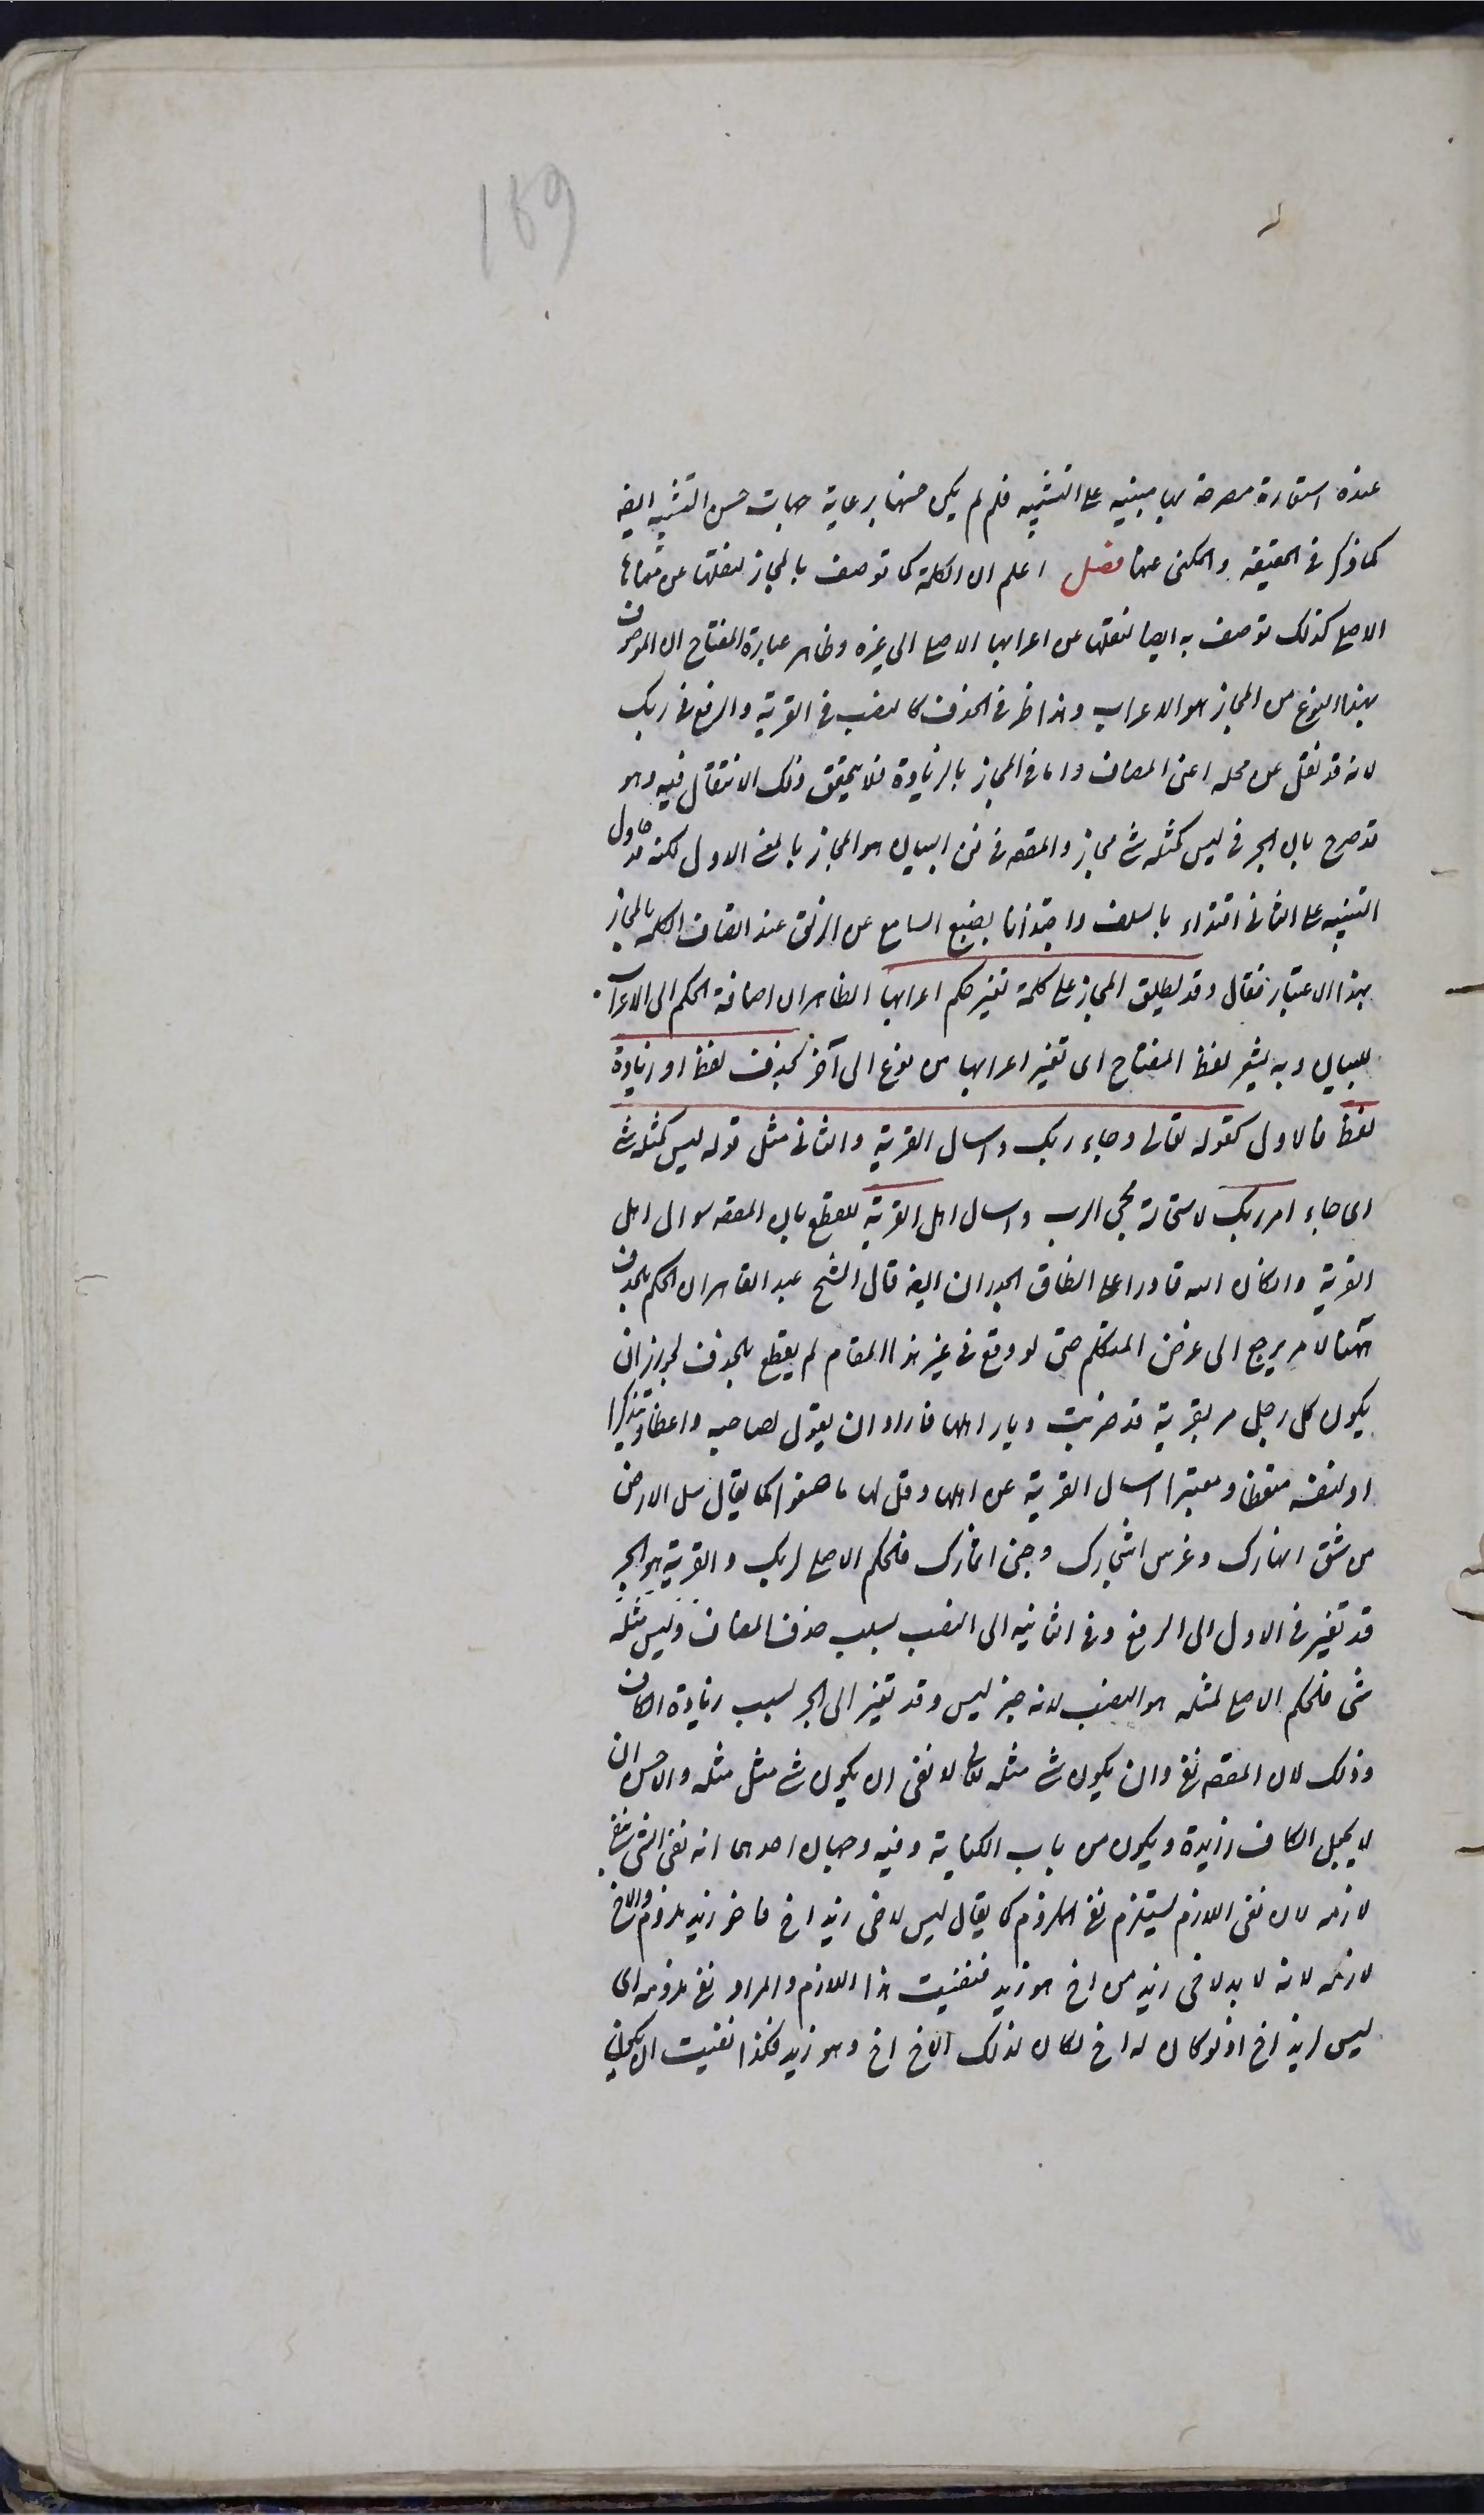 189
عنده استعارة مصرحة بها مبنية على التشبيه فلم لم يكن حسنها برعاية جهات حسن التشبيه ايضا
كما ذكر في الحقيقية والمكنى عنها فصل اعلم ان الكلمة كما توصف بالمجاز لنقلها عن معناها
الاصلي كذلك توصف به ايضا لنقلها عن اعرابها الاصلي الى غيره وظاهر عبارة المفتاح ان الموصوف
بهذا النوع من المجاز هو الاعراب وهذا ظ في الحذف كالنصب في القرية والرفع في ربك
لانه قد نقل عن محله اعنى المضاف واما في المجاز بالزيادة فلا يتحقق ذلك الانتقال فيه وهو
قد صرح بان الجر في ليس كمثله شئ مجاز والمقصود في فن البيان هو المجاز بالمعنى الاول لكنه قد حاول
التنبيه على الثانى اقتداء بالسلف واجتذابا بضبع السامع عن الزلق عند اتصاف الكلمة بالمجاز
بهذا الاعتبار فقال وقد يطلق المجاز على كلمة تغير حكم اعرابها الظاهر ان اضافة الحكم الى الاعراب
للبيان وبه يشعر لفظ المفتاح اى تغير اعرابها من نوع الى آخر بحذف لفظ او زيادة
لفظ فالاول كقوله تعالى وجاء ربك واسال القرية والثانى مثل قوله ليس كمثله شئ
اى جاء امر ربك لاستحالة مجئ الرب واسال اهل القرية للقطع بان المقصود سوال اهل
القرية وان كان الله قادرا على انطاق الجدران ايضا قال الشيخ عبد القاهر ان الحكم بالحذف
ههنا لامر يرجع الى غرض المتكلم حتى لو وقع في غير هذا المقام لم يقطع بالحذف لجواز ان
يكون كل رجل مر بقرية قد خربت وباد اهلها فاراد ان يقول لصاحبه واعظا ومذكرا
او لنفسه متعظا ومعتبرا اسال القرية عن اهلها وقل لها ما صنعوا كما يقال سل الارض
من شق انهارك وغرس اشجارك وجنى اثمارك فالحكم الاصلي لربك والقرية هو الجر
قد تغير في الاول الى الرفع وفي الثانية الى النصب بسبب حذف المضاف وليس مثله
شئ فالحكم الاصلي لمثله هو النصب لانه خبر ليس وقد تغير الى الجر بسبب زيادة الكاف
وذلك لان المقصود نفى ان يكون شئ مثله تعالى لا نفى ان يكون شئ مثل مثله والاحسن ان
لا يجعل الكاف زايدة ويكون من باب الكناية وفيه وجهان احدهما انه نفى الشئ بنفى
لازمه لان نفى اللازم يستلزم نفى الملزوم كما يقال ليس لاخى زيد اخ فاخو زيد ملزوم والاخ
لازمه لانه لا بد لاخى زيد من اخ هو زيد فنفيت هذا اللازم والمراد نفى ملزومه اى
ليس لزيد اخ اذ لو كان له اخ لكان لذلك الاخ اخ وهو زيد فكذا نفيت ان يكون